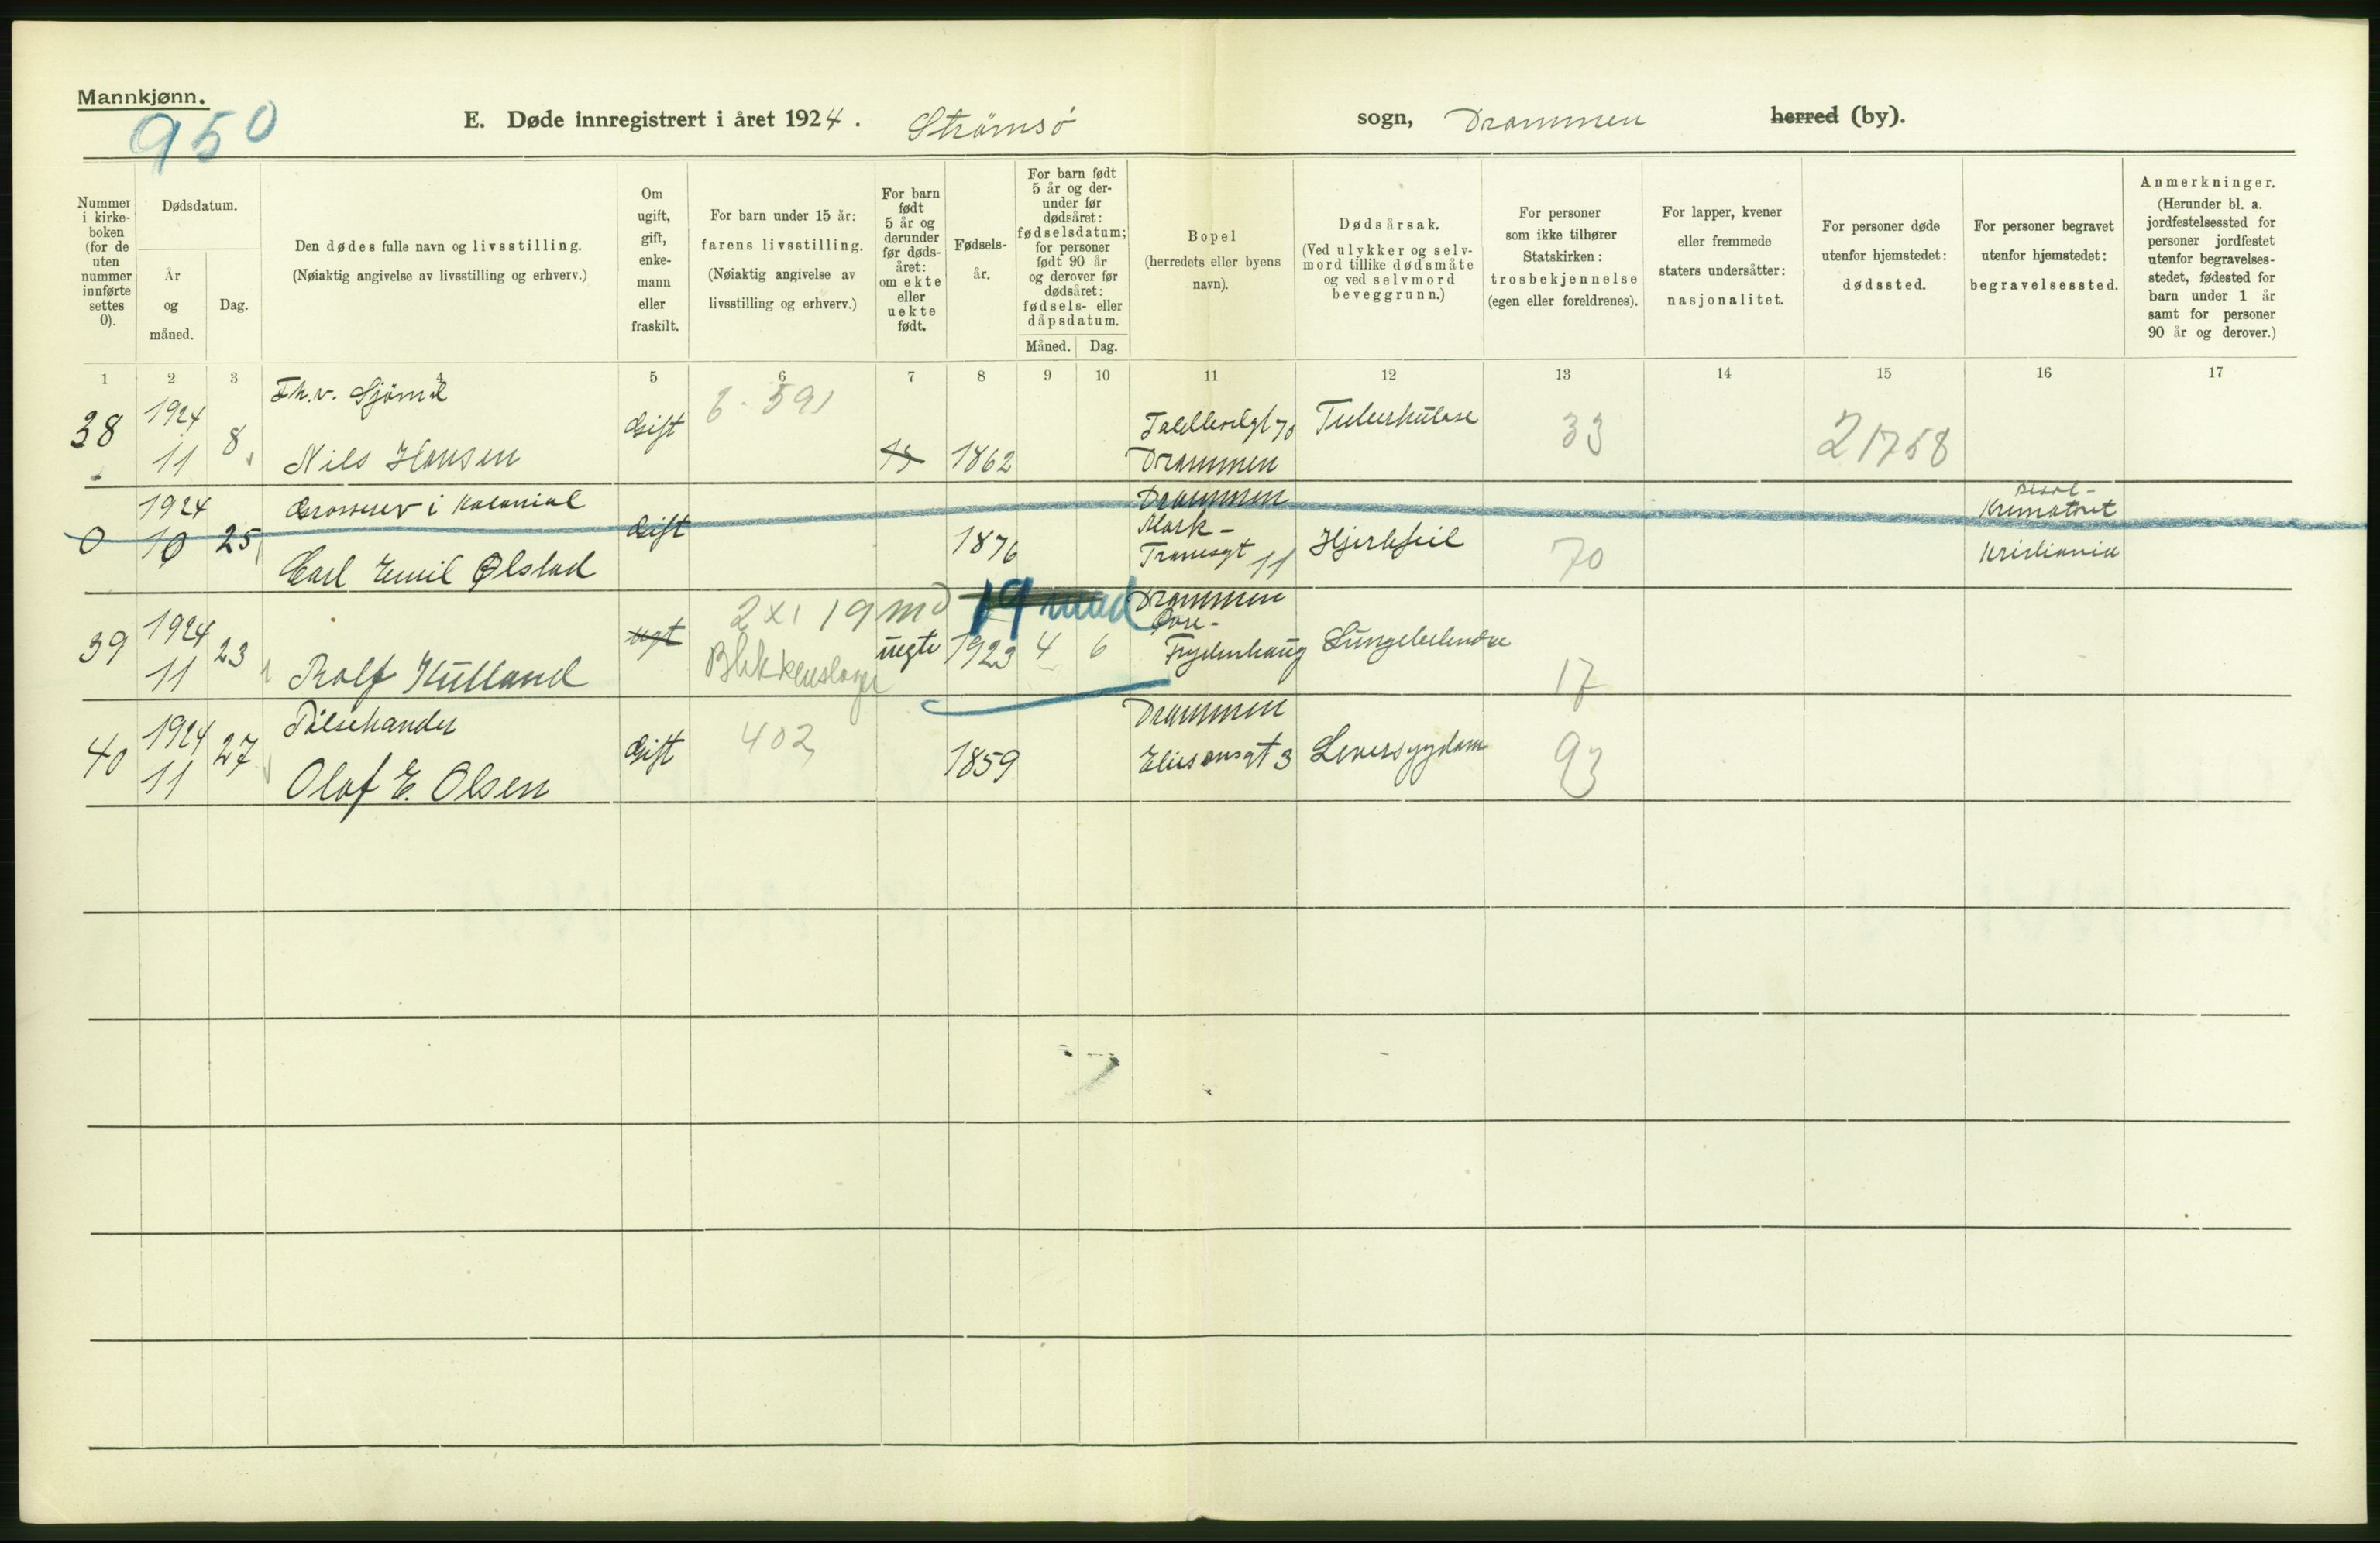 Mannkjønn.
950
E. Døde innregistrert i året 1924. Strömsö sogn, Drammen herred (by).
Nummer i kirke- boken (for de uten nummer innførte settes 0).
Dødsdatum.
År og måned.
Dag.
Den dødes fulle navn og livsstilling.
(Nøiaktig angivelse av livsstilling og erhverv.)
Om ugift, gift, enke- mann eller fraskilt.
For barn under 15 år:
farens livsstilling.
(Nøiaktig angivelse av livsstilling og erhverv.)
For barn født 5 år og derunder før døds- året: om ekte eller uekte født.
Fødsels- år.
For barn født 5 år og der- under før dødsåret: fødselsdatum; for personer født 90 år og derover før dødsåret: fødsels- eller dåpsdatum.
Måned. Dag.
Bopel
(herredets eller byens navn).
Dødsårsak.
(Ved ulykker og selv- mord tillike dødsmåte og ved selvmord beveggrunn.)
For personer som ikke tilhører Statskirken:
trosbekjennelse
(egen eller foreldrenes).
For lapper, kvener eller fremmede staters undersåtter:
nasjonalitet.
For personer døde utenfor hjemstedet:
dødssted.
For personer begravet utenfor hjemstedet:
begravelsessted.
Anmerkninger.
(Herunder bl. a. jordfestelsessted for personer jordfestet utenfor begravelses- stedet, fødested for barn under 1 år samt for personer 90 år og derover.)
1 2 3 4 5 6 7 8 9 10 11 12 13 14 15 16 17
Fh.v. Sjöm
38 1924 11 8 Nils Hansen Gift 591 1862 70 Drammen Tuberkulose 33 21758
Grosserer i Kolonial
0 1924 10 25 Carl Emil Ølstad Gift 1876 Drammen Mark- Tranesgt 11 Hjertefeil 70 Krematoriet Kristiania
39 1924 11 23 Rolf Kulland ugt 2x1 19 md Blikkenslager uegte 19 mnd 1923 4 6 Drammen Øvre- Frydenhaug Lungebetendse 17
Pölsehandler
40 1924 11 27 Olaf E. Olsen Gift 402 1859 Drammen Eliesonsgt 3 Leversygdom 93